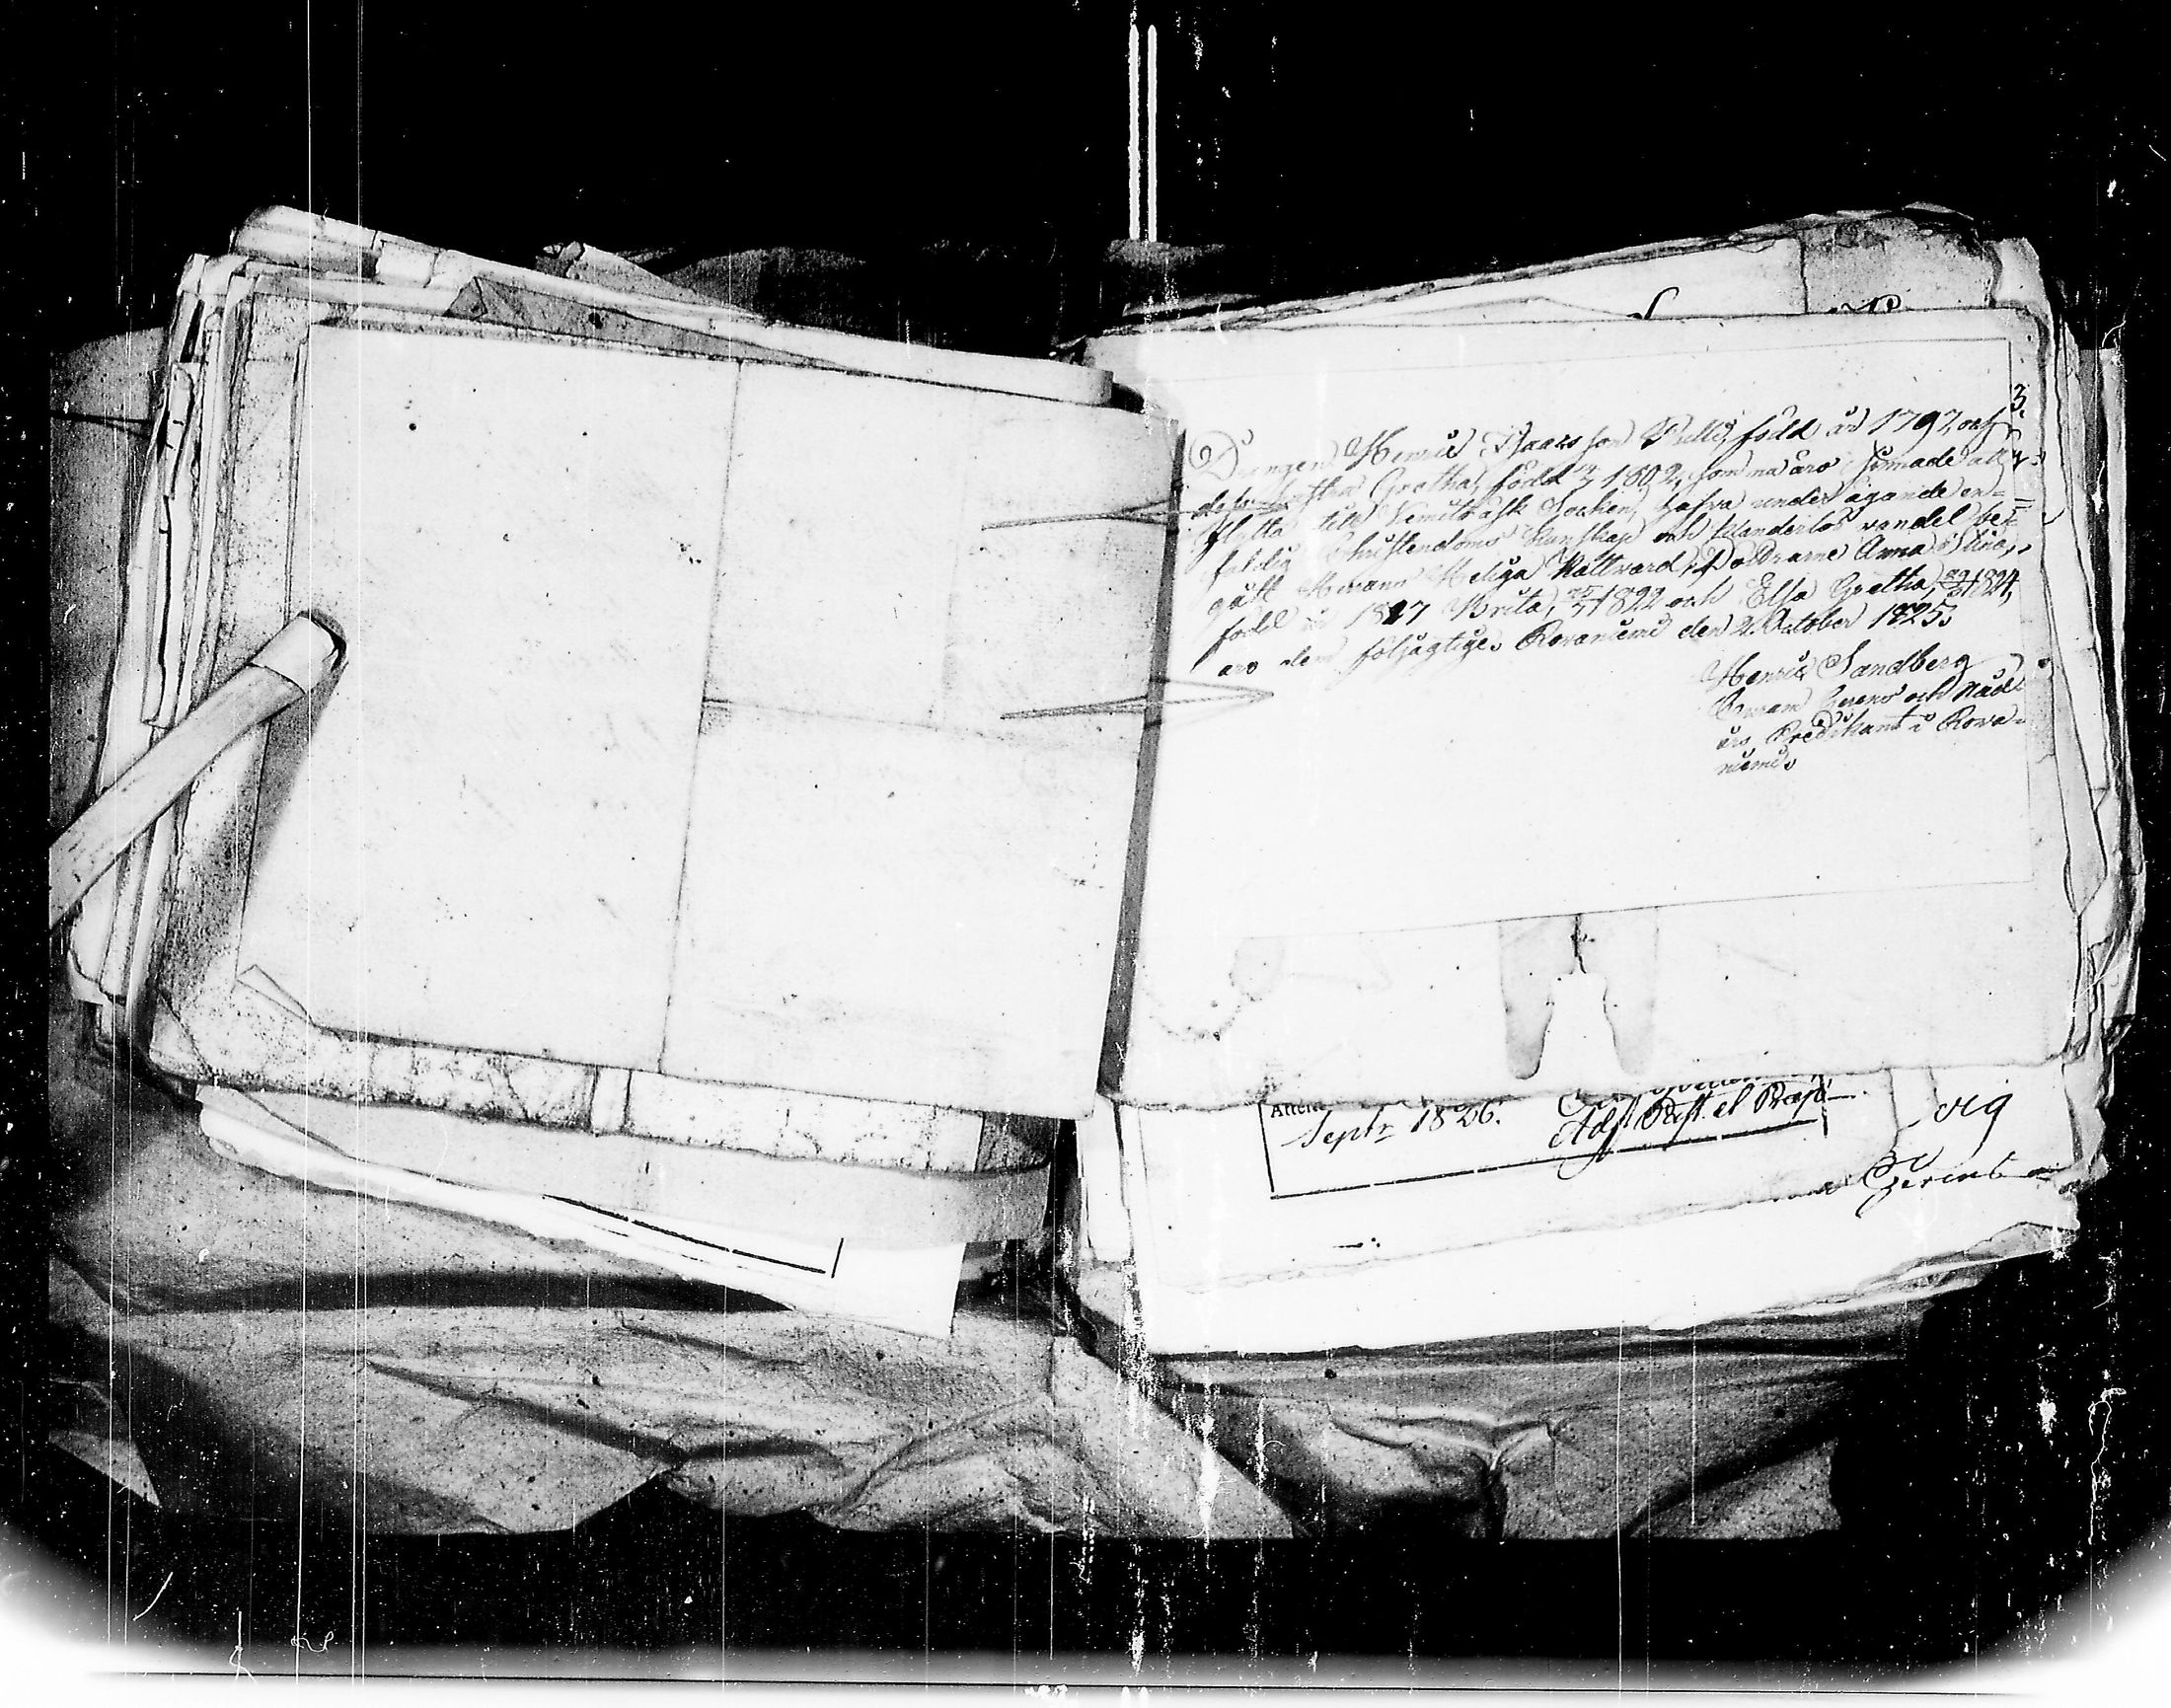 3.
Drängen Henric Isaacs son Pulli, född år 1792 och
dess hustru Gretha, född 1802, som na äro sinnade att
flytta till Kemiträsk Socken, hafva under ägande en-
faldig Christendoms kunskap och klanderlös vandel be-
gått Herrans Heliga Nattvard. Döttrarne Anna Stina,
född år 1817 Brita, 1822 och Elsa Gretha, 1824,
äro dem följagtige. Rovaniemi den 2. October 1825.
Henric Sandberg
och Nåd.
års Predikant i Rova-
niemi.
Attest
Septr 1826.
Adj. Past. et